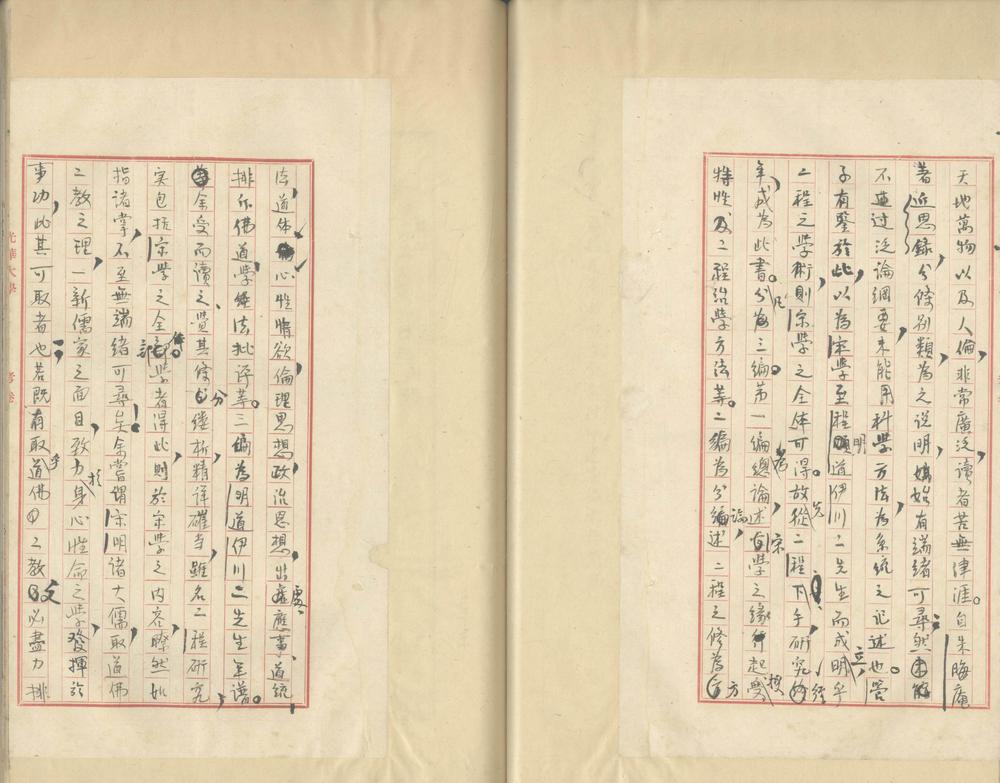 天地萬物以及人倫非常廣泛讀者苦無津涯。自朱晦庵
著近思錄分條別類為之說明嬀始有端緒可尋然
不過過泛論綱要未能用科學方法為系統之記述也。管
子有鑒於此以為宋學至程明道伊川二先生而成立明乎
二程之學術則宋學之全体可得。故先從二程下手研究經
年成為此書。凡分為三編。第一編為總論述宋學之緣起受授
特性及二程治學方法等。二編為分論述二程之修為方
法道体心性情欲倫理思想政治思想出處應事道統
排斥佛道學經法批評等。三編為明道伊川二先生年譜。
余受而讀之覺其條分縷析精詳確當雖名二程研究
实包括宋學之全部。學者得此則於宋學之內容瞭然如
指諸掌不至無端緒可尋矣余嘗謂宋明諸大儒取道佛
二教之理一新儒家之面目致力於身心性命之學發揮於
事功此其可取者也若既有取乎道佛二教又必盡力排
光華大學
考卷